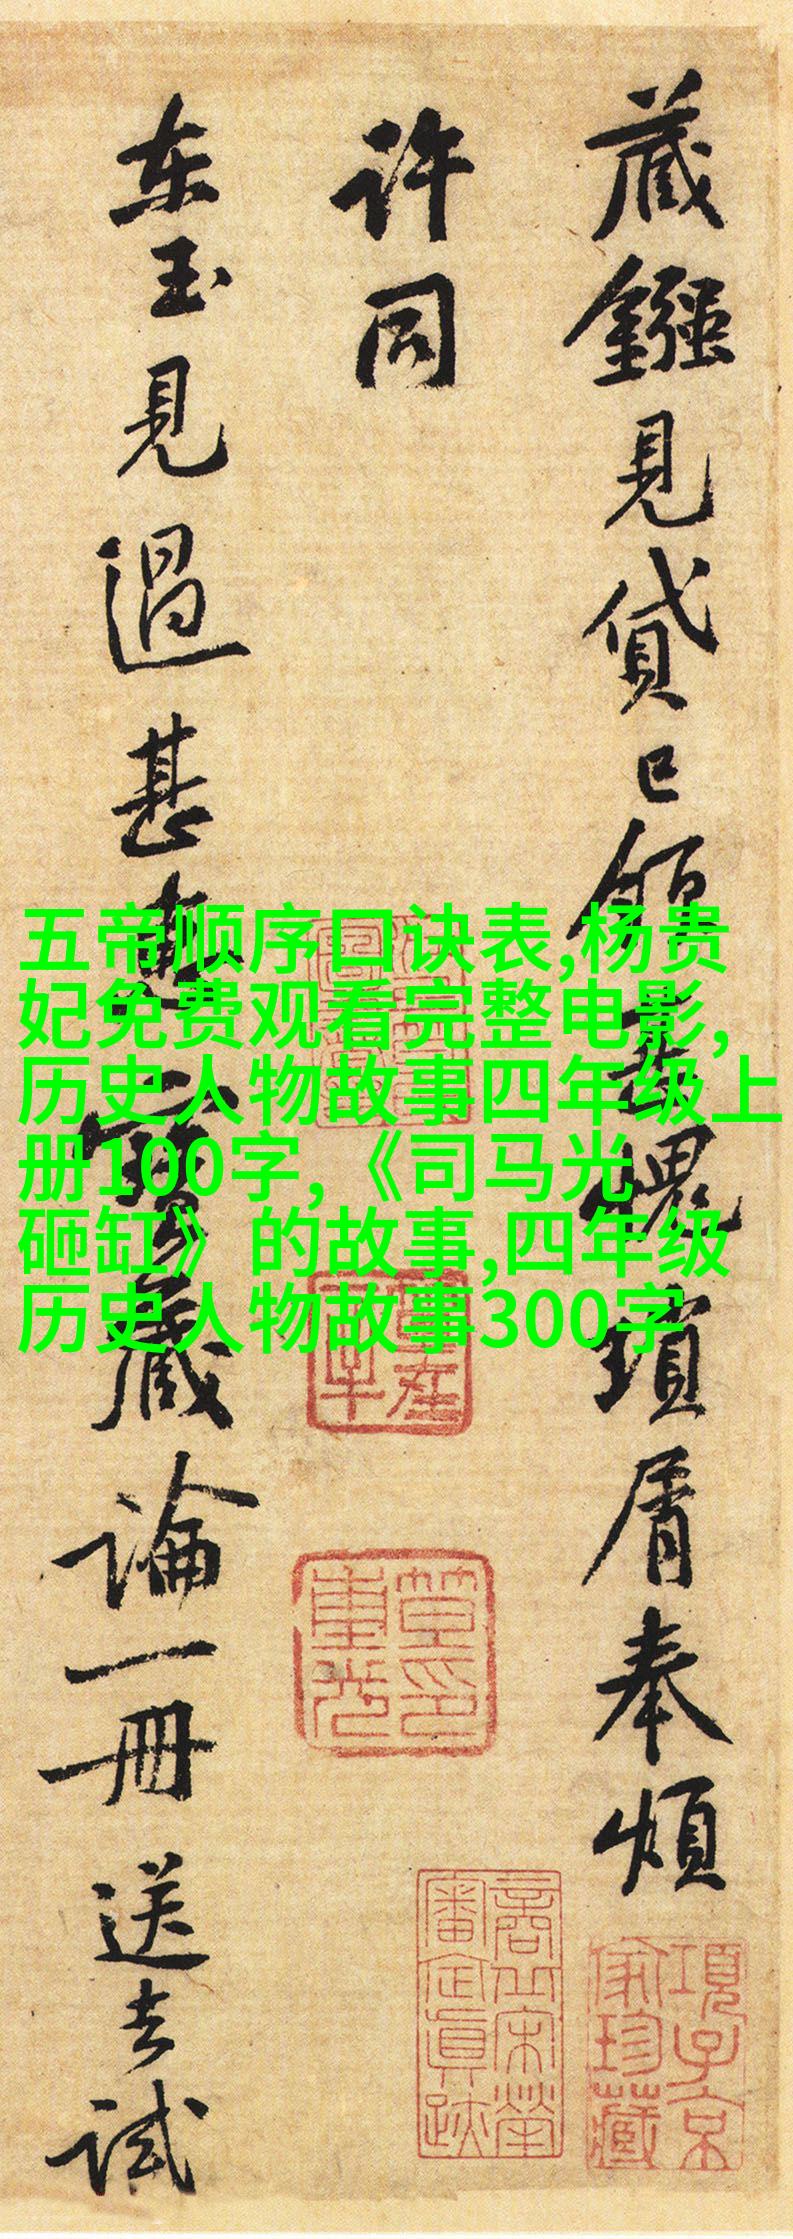 藏鏹見貸已領
愧瑣屑奉煩
许同
东玉見過甚
寳藏論一冊送去試
五帝顺序口诀表,杨贵
妃免费观看完整电影,
历史人物故事四年级上
册100字,《司马光
砸缸》的故事,四年级
历史人物故事300字
項子京
家珍藏